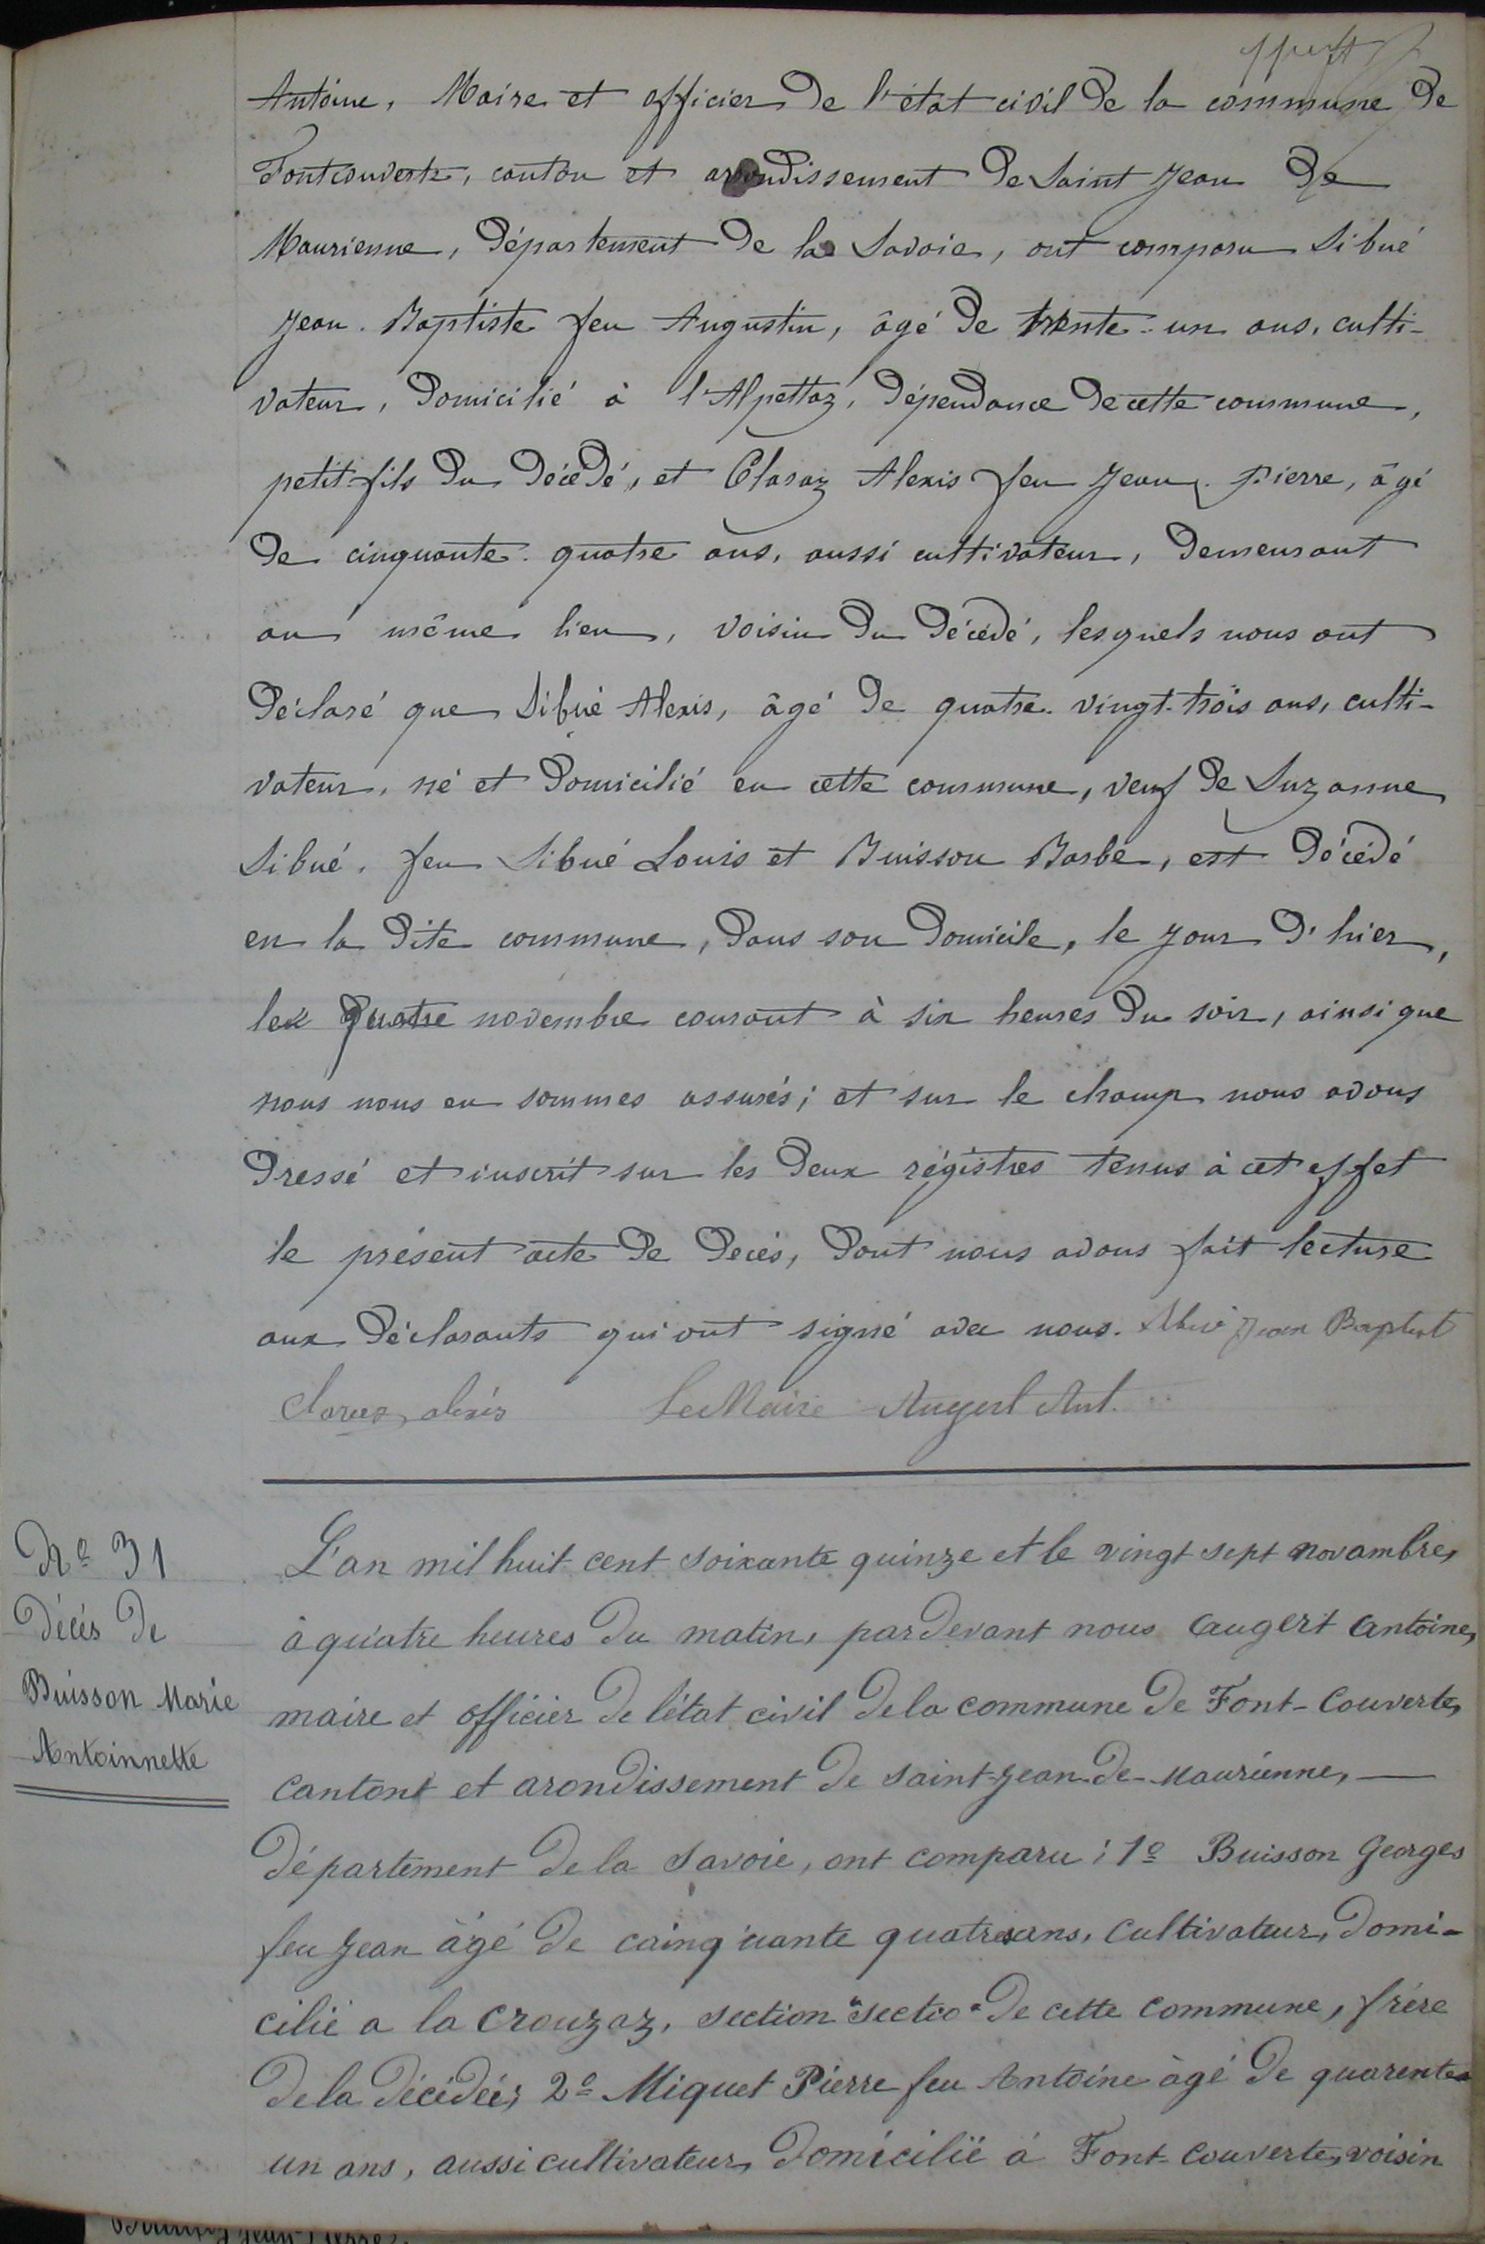 Antoine, Maire et officier de l'état civil de la commune de
Fontcouverte, canton et arrondissement de Saint Jean de
Maurienne, département de la Savoie, ont comparu Sibué
Jean-Baptiste feu Augustin, âgé de trente-un ans, culti-
vateur, domicilié à l'Alpettaz, dépendance de cette commune,
petit-fils du décédé, et Claraz Alexis feu Jean-Pierre, âgé
de cinquante-quatre ans, aussi cultivateur, demeurant
au même lieu, voisin du décédé, lesquels nous ont
déclaré que Sibué Alexis, âgé de quatre-vingt-trois ans, culti-
vateur, né et domicilié en cette commune, veuf de Suzanne
Sibué, feu Sibué Louis et Buisson Barbe, est décédé
en la dite commune, dans son domicile, le jour d'hier,
le quatre novembre courant à six heures du soir, ainsi que
nous nous en sommes assurés; et sur le champ nous avons
dressé et inscrit sur les deux régistres tenus à cet effet
le présent acte de decès, dont nous avons fait lecture
aux déclarants qui ont signé avec nous. Sibué Jean Baptist
Claraz alexis Le Maire Augert Ant.
N° 31
Décés de
Buisson Marie
Antoinnette
L'an mil huit cent soixante quinze et le vingt sept novambre,
à quatre heures du matin, pardevant nous augert antoine,
maire et officier de l'état civil de la commune de Font-Couverte,
cantont et arondissement de saint-jean-de-Maurienne, —
département de la Savoie, ont comparu : 1° Buisson Georges
feu Jean âgé de cainquante quatre ans, Cultivateur, domi-
cilié a la Crouzaz, section "sectio" de cette commune, frére
de la décédée, 2° Miquet Pierre feu Antoine âgé de quarente
un ans, aussi cultivateur, domicilié à Font-Couverte, voisin